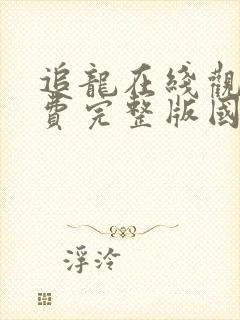 追龍在綫觀
費完整版國
浮泠